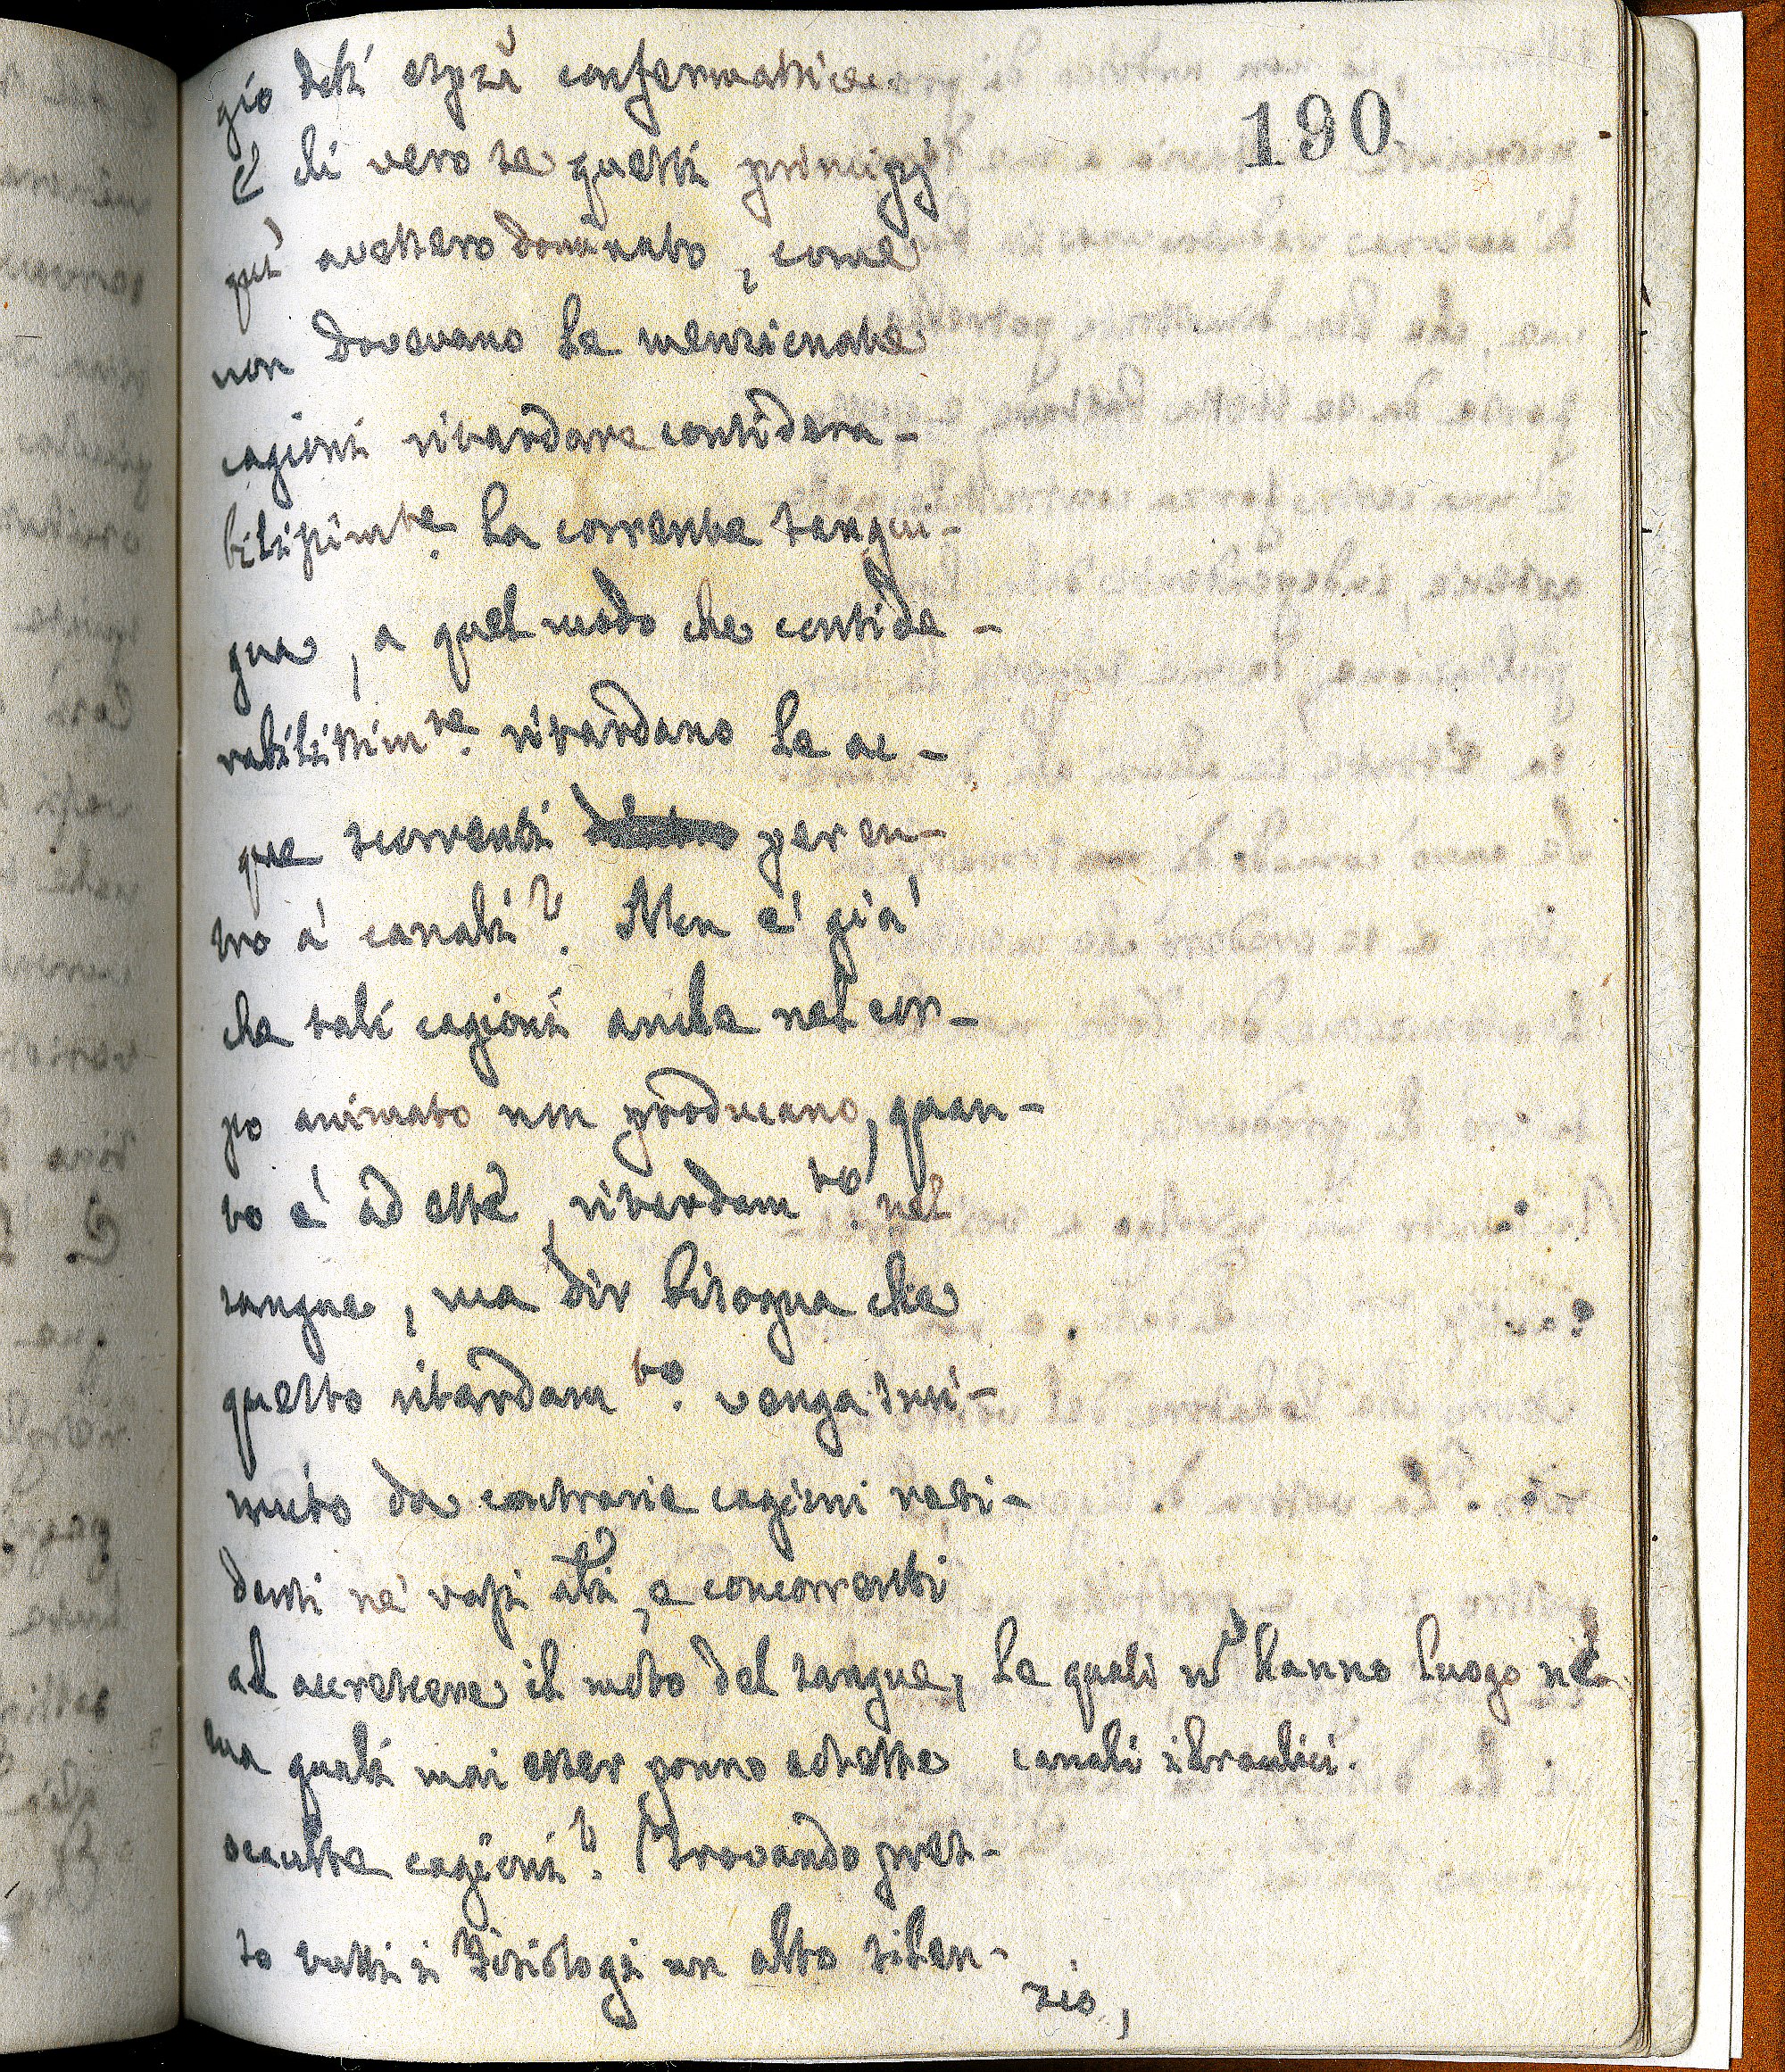 190
gio deli espzi confermatrice
E di vero se questi principj
quì avessero dominato, come
non dovevano le menzionate
cagioni ritardare considera-
bilissimte. la corrente sangui-
gna, a quel modo che conside-
rabilissimte. ritardano le ac-
que scorrenti per en-
tro a' canali? Non è già
che tali cagioni anche nel cor-
po animato non producano, quan-
to è ad esse, ritardamto. nel
sangue, ma dir bisogna che
questo ritardamto. venga smi-
nuito da contrarie cagioni resi-
denti ne' vasi stĩ, e concorrenti
ad accrescere il moto del sangue, le quali nō hanno luogo nel
canali idraulici.
ma quali mai esser ponno codeste
occulte cagioni? Trovando pres-
so tutti i Fisiologi un alto silen-
zio,